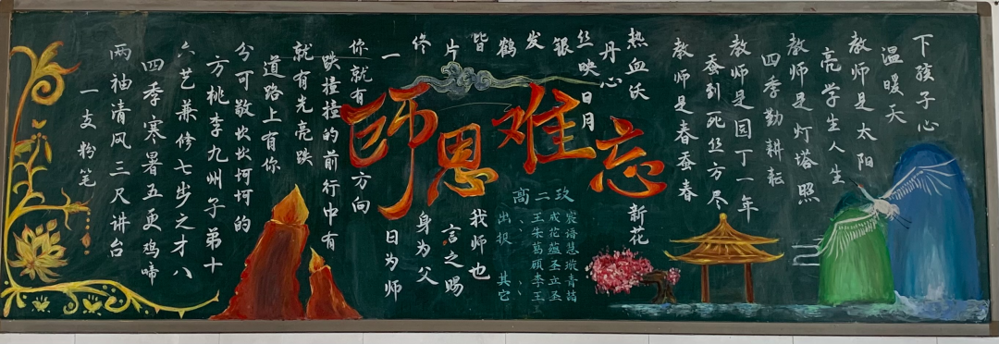 一支粉笔
两袖清风三尺讲台
四季寒暑五更鸡啼
六艺兼修七步之才八
方桃李九州子弟十
分可敬坎坎坷坷的
道路上有你
就有光亮跌
跌撞撞的前行中有
你就有方向
一日为师
终身为父
片言之赐
皆我师也
鹤
发
银
丝映日月
丹心
热血沃新花
师恩难忘
高二玖
出报
其它
教师是春蚕春
蚕到死丝方尽
教师是园丁一年
四季勤耕耘
教师是灯塔照
亮学生人生
教师是太阳
温暖天
下孩子心